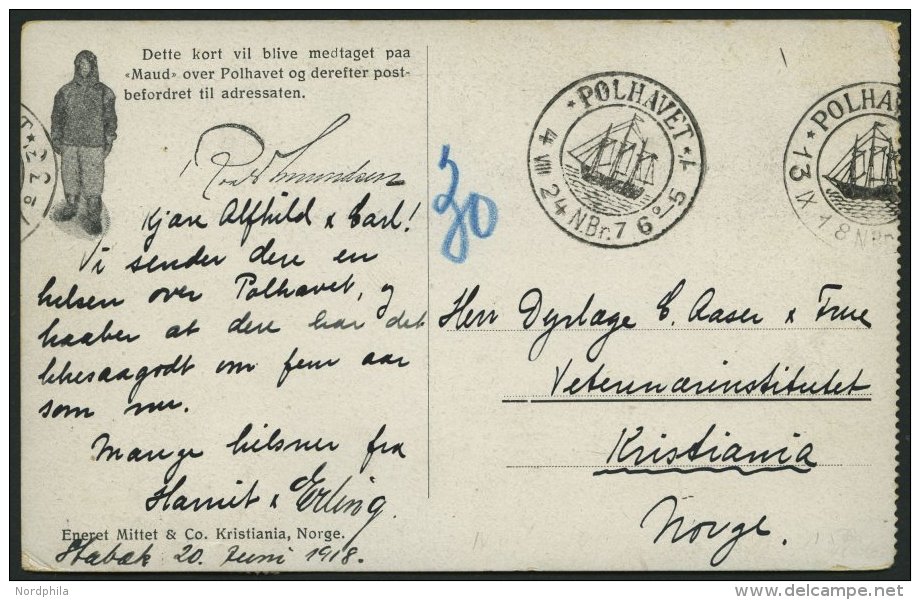 Dette kort vil blive medtaget paa
«Maud» over Polhavet og derefter post-
befordret til adressaten.
Roald Amundsen
Kjære Alfhild & Carl!
Vi sender dere en
helsen over Polhavet, og
haaber at dere har det
likesaagodt om fem aar
som nu.
Mange hilsner fra
Harriet & Erling.
Eneret Mittet & Co. Kristiania, Norge.
Stabæk 20. Juni 1918.
30
* POLHAVET *
4 VIII 24 N.Br. 76°-5
* POLHA
13 IX 18 N.Br.
Herr Dyrlæge C. Aaser & Frue
Veterinærinstitutet
Kristiania
Norge.
©Nordphila
delcampe.net